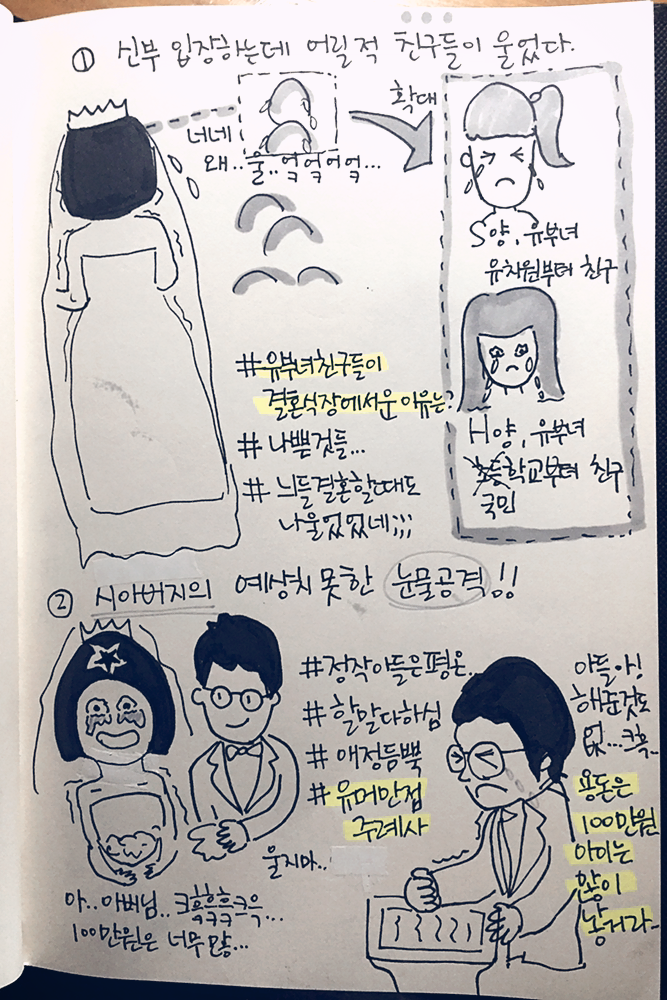 ① 신부 입장하는데 어릴적 친구들이 울었다.
확대
너네
왜..울..억억어억...
S양, 유부녀
유치원부터 친구
H양, 유부녀
초등학교부터 친구
국민
#유부녀친구들이
결혼식장에서운이유는?
# 나쁜것들...
# 늬들결혼할때도
나울었었네;;;
② 시아버지의 예상치 못한 눈물공격!!
#정작아들은평온..
#할말다하심
# 애정듬뿍
# 유머만점
주례사
아들아!
해준것도
없...크흑..
용돈은
100만원
아이는
많이
낳거라~
울지마..
아..아버님..크흡흐흐크윽...
100만원은 너무 많...